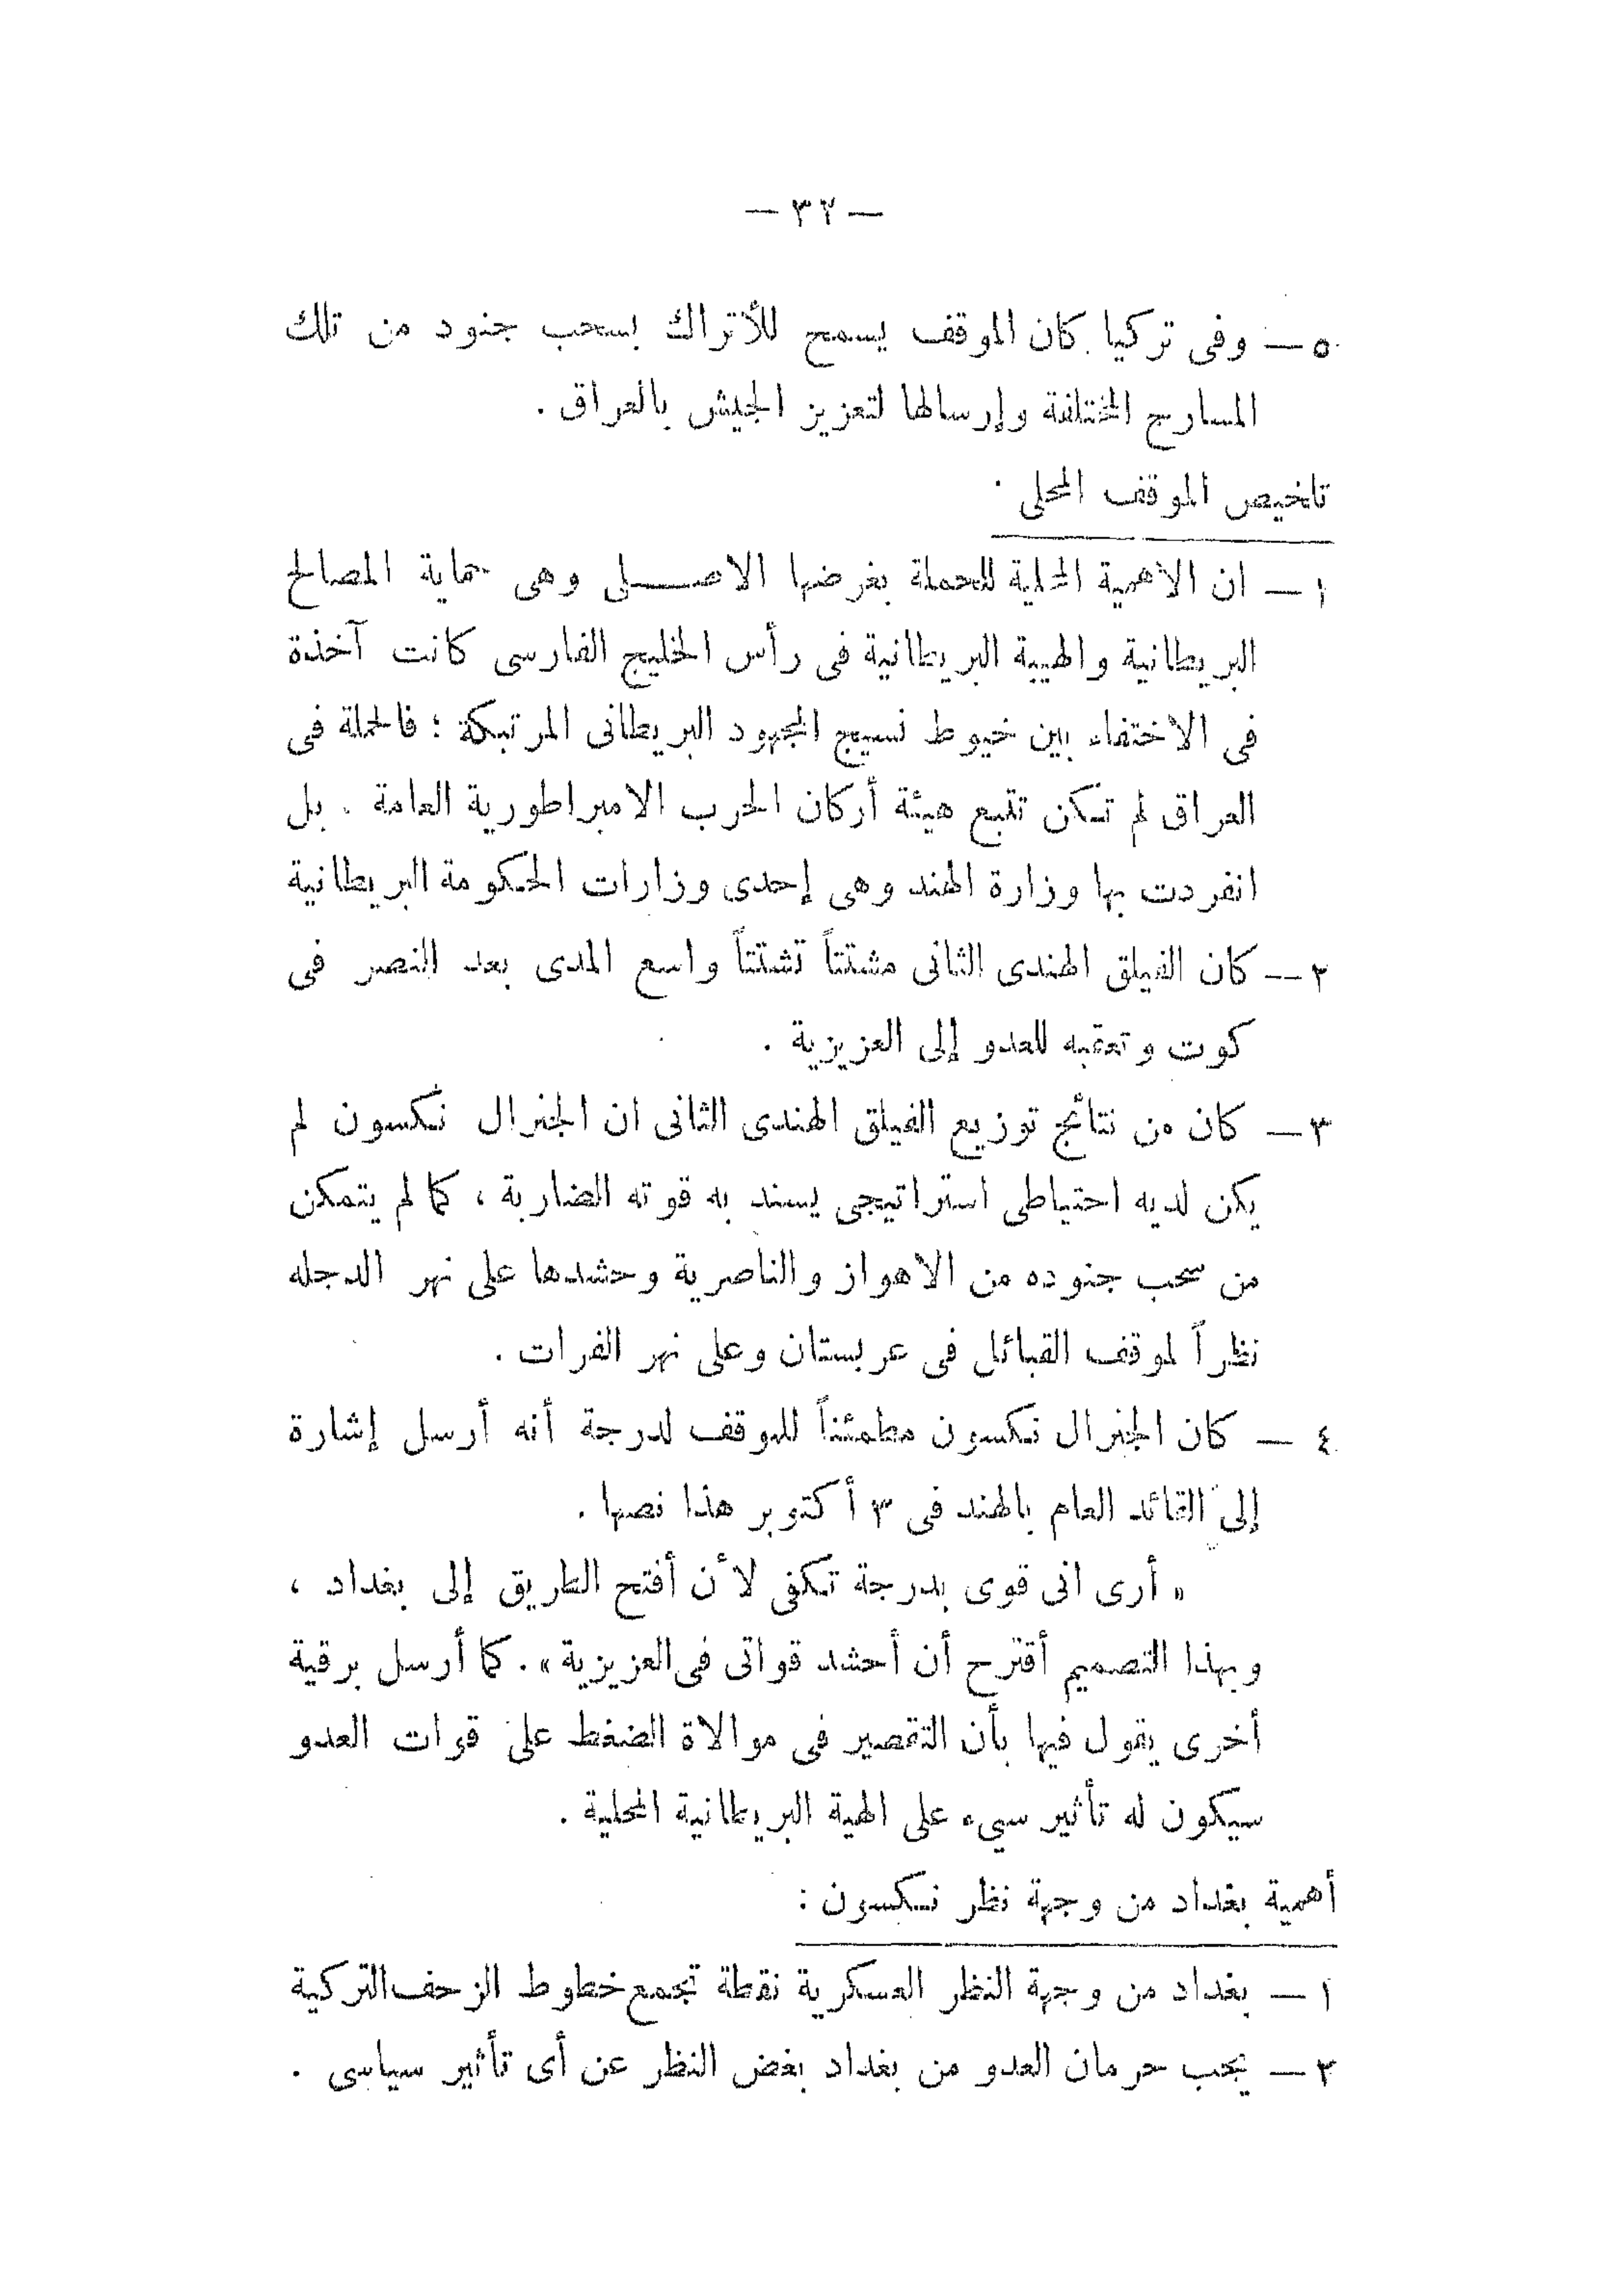 — ٣٢ —
٥ — وفى تركيا كان الموقف يسمح للأتراك بسحب جنود من تلك
المسارح المختلفة وإرسالها لتعزيز الجيش بالعراق .
تلخيص الموقف المحلى .
١ — ان الأهمية المحلية للحملة بغرضها الاصـــلى وهى حماية المصالح
البريطانية والهيبة البريطانية فى رأس الخليج الفارسى كانت آخذة
فى الاختفاء بين خيوط نسيج المجهود البريطانى المرتبكة ؛ فالحملة فى
العراق لم تكن تتبع هيئة أركان الحرب الامبراطورية العامة . بل
انفردت بها وزارة الهند وهى إحدى وزارات الحكومة البريطانية
٢ — كان الفيلق الهندى الثانى مشتتاً تشتتاً واسع المدى بعد النصر فى
كوت وتعقبه للعدو إلى العزيزية .
٣ — كان من نتائج توزيع الفيلق الهندى الثانى ان الجنرال نكسون لم
يكن لديه احتياطى استراتيجى يسند به قوته الضاربة ، كما لم يتمكن
من سحب جنوده من الاهواز والناصرية وحشدها على نهر الدجله
نظراً لموقف القبائل فى عربستان وعلى نهر الفرات .
٤ — كان الجنرال نكسون مطمئناً للموقف لدرجة أنه أرسل إشارة
إلى القائد العام بالهند فى ٣ أكتوبر هذا نصها .
« أرى انى قوى بدرجة تكفى لأن أفتح الطريق إلى بغداد ،
وبهذا التصميم أقترح أن أحشد قواتى فى العزيزية » . كما أرسل برقية
أخرى يقول فيها بأن التقصير فى موالاة الضغط على قوات العدو
سيكون له تأثير سيء على الهيبة البريطانية المحلية .
أهمية بغداد من وجهة نظر نكسون :
١ — بغداد من وجهة النظر العسكرية نقطة تجمع خطوط الزحف التركية
٢ — يجب حرمان العدو من بغداد بغض النظر عن أى تأثير سياسى .